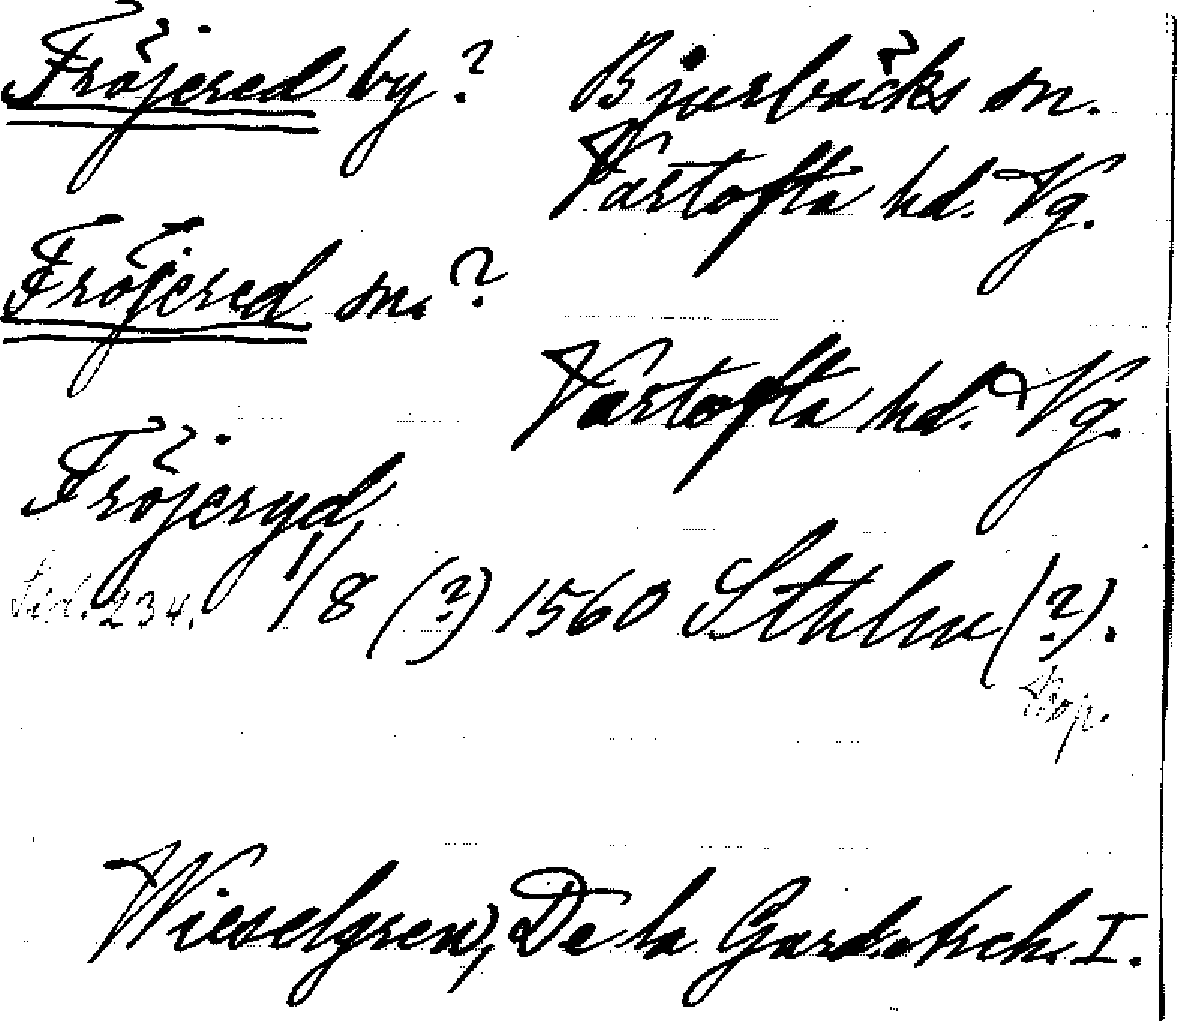 Fröjered by? Bjurbäcks sn.
Vartofta hd. Vg.
Fröjered sn.?
Vartofta hd. Vg.
Fröjeryd
Sid. 234. 1/8 (?) 1560 Sthlm (?).
Kop.
Wieselgren, De la Gard. arch. I.